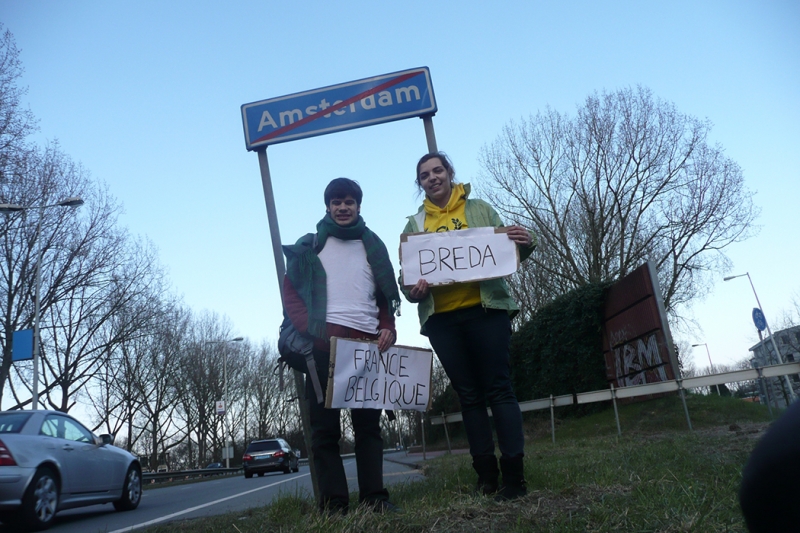 Amsterdam
BREDA
FRANCE
BELGIQUE